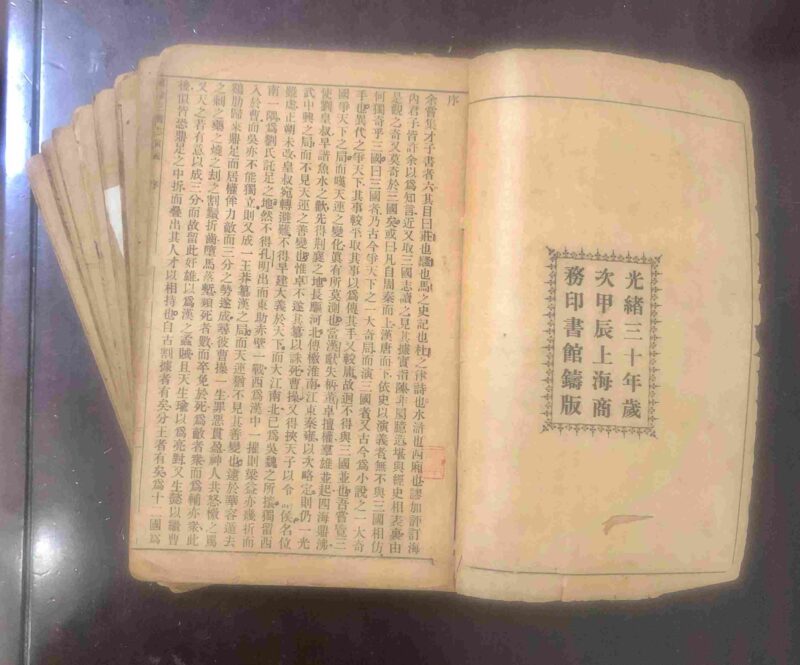 光緒三十年歲
次甲辰上海商
務印書館鑄版
序
余嘗集才子書者六其目曰莊也騷也馬之史記也杜之律詩也水滸也西廂也謬加評訂海
內君子皆許余以為知言近又取三國志讀之見其據實指陳非屬臆造堪與經史相表裏由
是觀之奇又莫奇於三國矣或曰凡自周秦而上漢唐而下依史以演義者無不與三國相仿
何獨奇乎三國曰三國者乃古今爭天下之一大奇局而演三國者又古今爲小說之一大奇
手也異代之爭天下其事較平取其事以爲傳其手又較庸故迥不得與三國並也吾嘗覽三
國爭天下之局而嘆天運之變化眞有所莫測也當漢獻失柄董卓擅權羣雄並起四海鼎沸
使劉皇叔早諧魚水之歡先得荊襄之地長驅河北傳檄淮南江東秦雍以次略定則仍一光
武中興之局而不見天運之善變也惟卓不遂其篡以誅死曹操又得挾天子以令諸侯名位
雖虛正朔未改皇叔宛轉避難不得早建大義於天下而大江南北已爲吳魏之所攘獨留西
南一隅爲劉氏託足之地然不得孔明出而東助赤壁一戰西爲漢中一摧則梁益亦幾折而
入於曹而吳亦不能獨立則又成一王莽篡漢之局而天運猶不見其善變也逮於華容遁去
鷄肋歸來鼎足而居權侔力敵而三分之勢遂成尋彼曹操一生罪惡貫盈神人共怒檄之罵
之刺之藥之燒之劫之割鬚折齒墮馬落塹瀕死者數而卒免於死爲敵者衆而爲輔亦衆此
又天之若有意以成三分而故留此奸雄以爲漢之蝥賊且天生瑜以爲亮對又生懿以繼曹
後似皆恐鼎足之中折而疊出其人才以相持也自古割據者有矣分王者有矣爲十二國爲